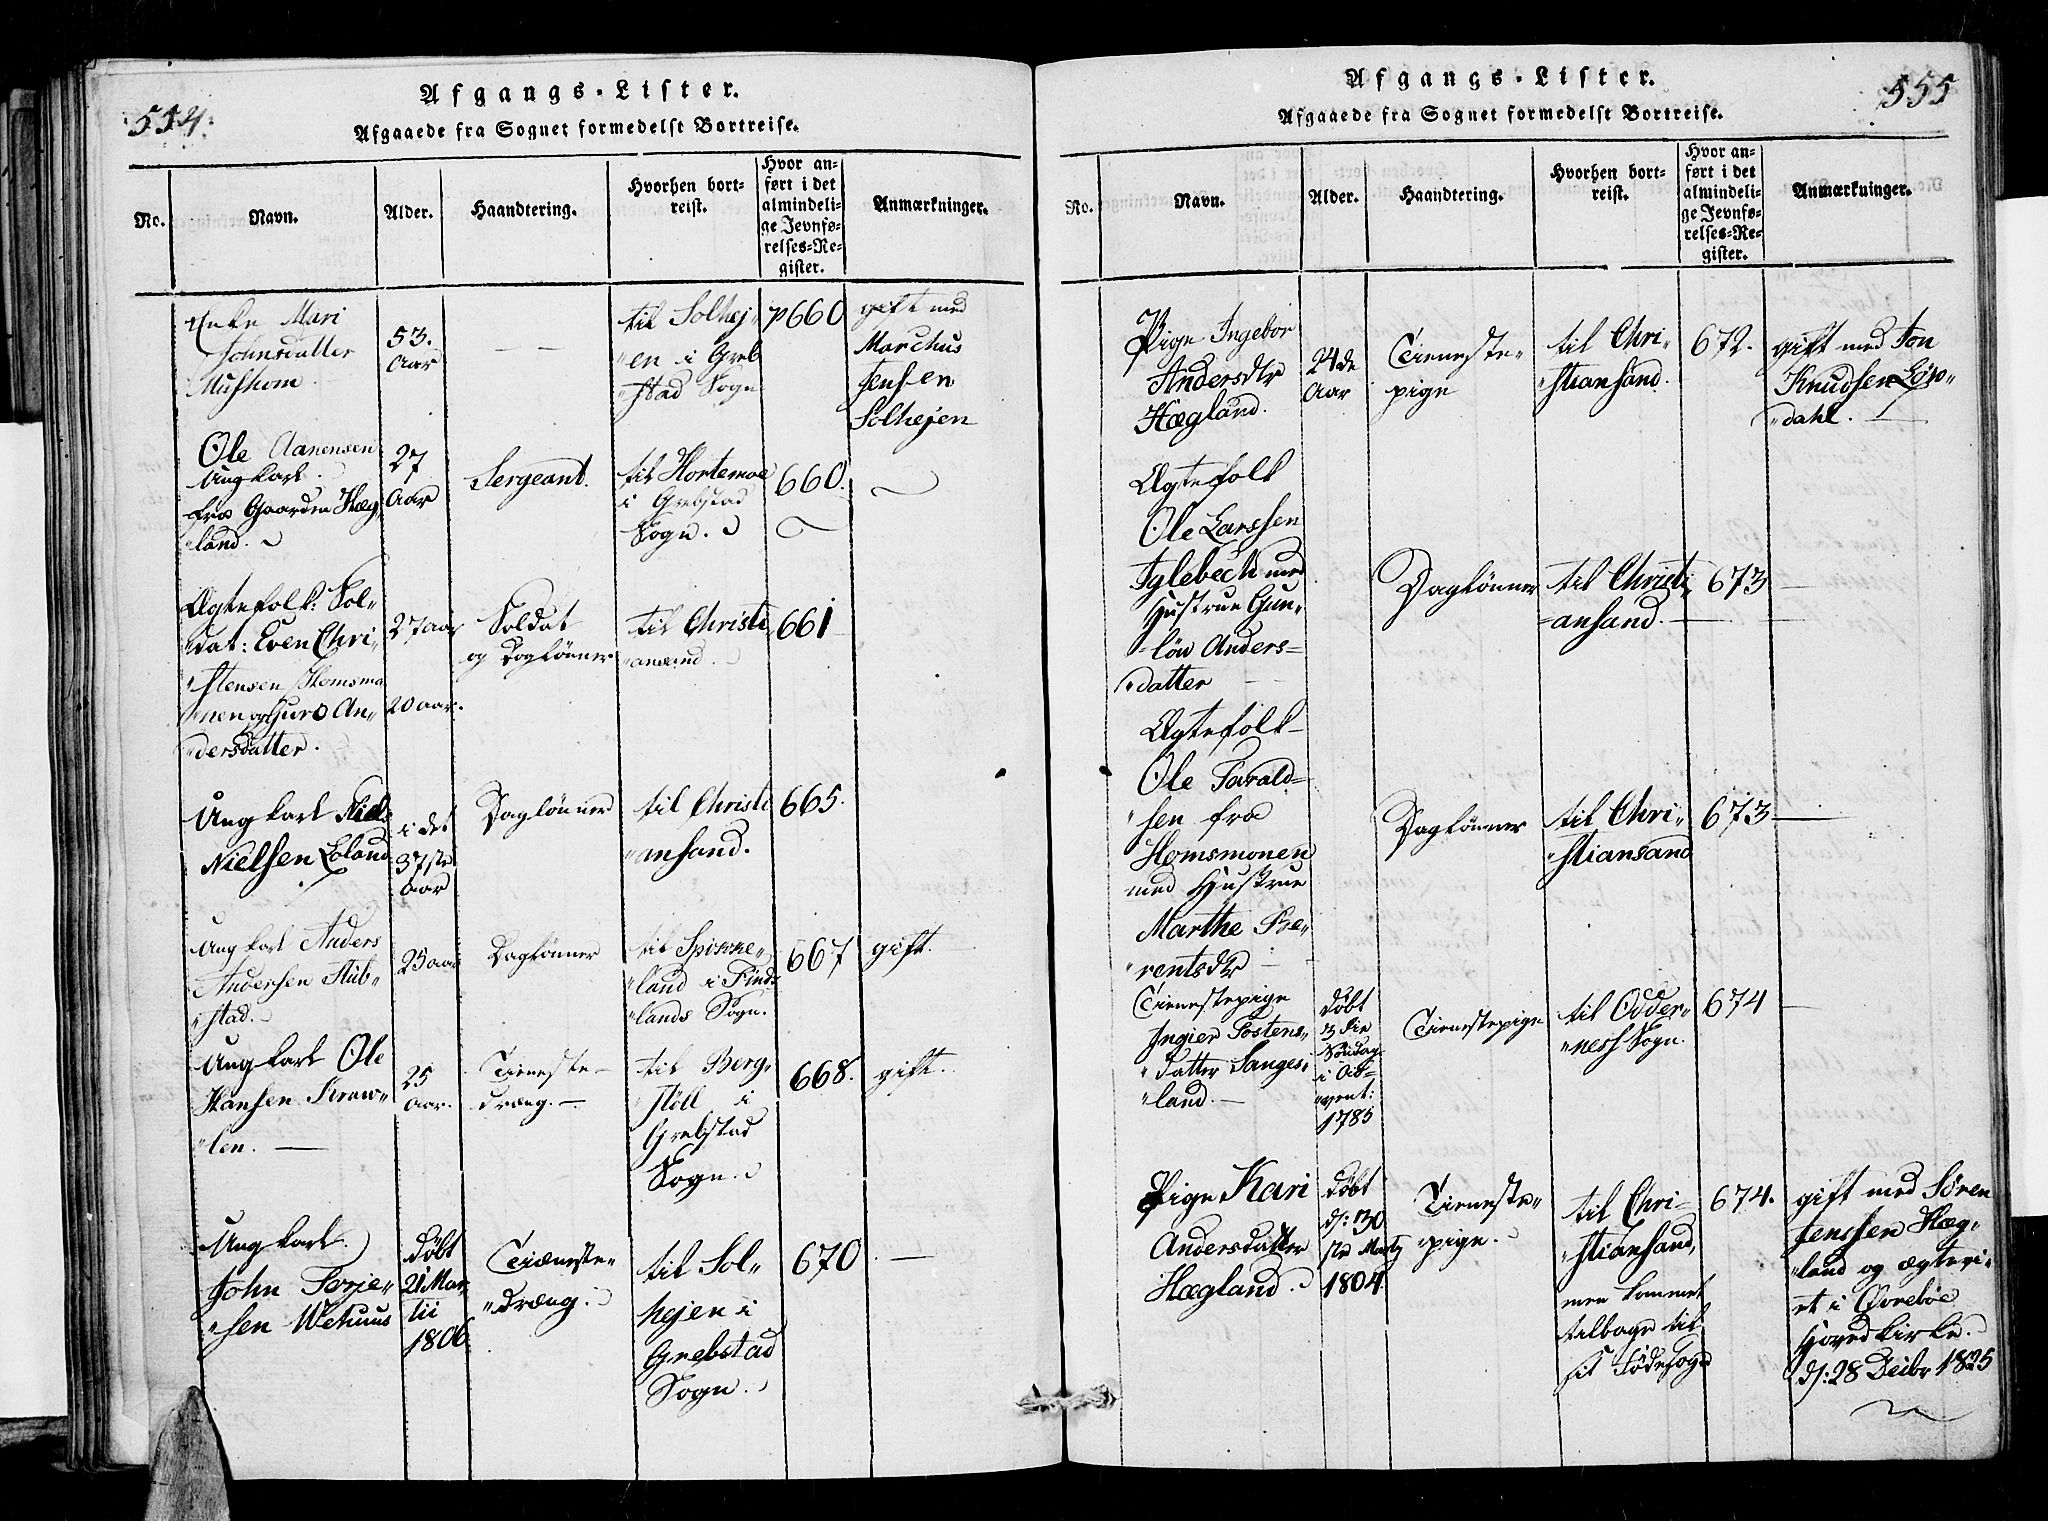 554.
Afgangs-Lister.
Afgaaede fra Sognet formedelst Bortreise.
No.
Navn.
Alder.
Haandtering.
Hvorhen bort-
reist.
Hvor an-
ført i det
almindeli-
ge Jevnfø-
relses-Re-
gister.
Anmærkninger.
Enke Mari
Johnsdatter
Mushom
53.
Aar
til Solhej„
„en i Greb
„stad Sogn
p 660
gift med
Marchus
Jensen
Solhejen
Ole Aanensen
Ungkarl.
fra Gaarden Hæg„
„land.
27
Aar
Sergeant.
til Hortemoe
i Grebstad
Sogn.
660.
Ægtefolk: Sol„
„dat: Even Chri„
„stensen Homsmo
„nen og Guro An„
„dersdatter.
27 aar
20 aar.
Soldat
og Daglønner
til Christi
„ansand.
661
Ungkarl Niels
Nielsen Loland
i det
37te
Aar
Daglønner
til Christi
„ansand.
665.
Ungkarl Anders
Andersen Stub„
„stad.
25 aar
Daglønner
til
„land i Find„
„lands Sogn.
667
gift.
Ungkarl Ole
Hansen
„len.
25
Aar.
Tieneste-
dræng.
til Berg„
„støll i
Grebstad
Sogn.
668.
gift.
Ungkarl
John Terje„
„sen Wehuus
døbt
21 Mar
tii
1806
Tiæneste„
„dræng.
til Sol„
hejen i
Grebstad
Sogn.
670
555
Afgangs-Lister.
Afgaaede fra Sognet formedelst Bortreise.
No.
Navn.
Alder.
Haandtering.
Hvorhen bort-
reist.
Hvor an-
ført i det
almindeli-
ge Jevnfø-
relses-Re-
gister.
Anmærkninger.
Pige Ingebor
Andersdtr
Hægland.
24de
Aar
Tieneste„
pige
til Chri„
„stiansand.
672.
gift med Jon
Knudsen Løw„
„dahl.
Ægtefolk
Ole Larssen
Iglebech med
Hustrue Gun„
„löw Anders=
„datter
Daglønner
til Christi
=ansand.
673
Ægtefolk
Ole Tarald=
„sen fra
Homsmonen
med Hustrue
Marthe Be„
„rentsdtr
Daglønner
til Chri„
„stiansand
673
Tienestepige
Ingier Tostens„
„datter Sanges„
„land.
døbt
3die
Søndag
i Ad=
„vent:
1785
Tienestepige
til Odder„
„ness Sogn.
674
Pige Kari
Andersdatter
Hægland.
døbt
d: 30
te Martz
1804
Tieneste„
„pige.
til Chri„
„stiansand,
men kommet
tilbage til
sit Fødesogn
674.
gift med Sören
Jenssen Hæg„
„land og ægtevi„
et i Øvrebøe
Hovedkirke.
d: 28 Decbr 1825